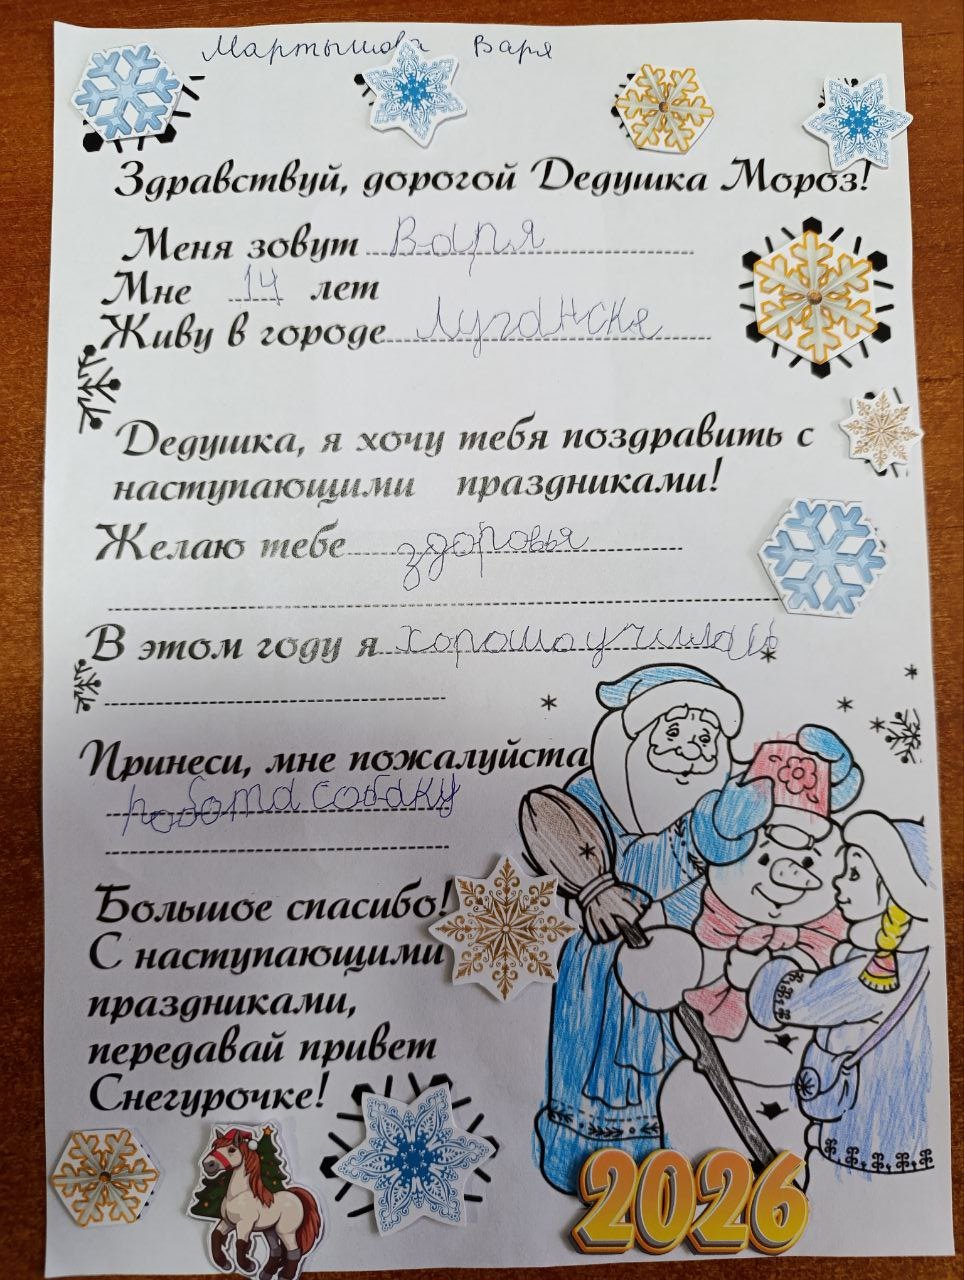 Мартышова Варя
Здравствуй, дорогой Дедушка Мороз!
Меня зовут Варя
Мне 14 лет
Живу в городе Луганске
Дедушка, я хочу тебя поздравить с
наступающими праздниками!
Желаю тебе здоровья
В этом году я хорошо училась
Принеси, мне пожалуйста
робота собаку
Большое спасибо!
С наступающими
праздниками,
передавай привет
Снегурочке!
2026